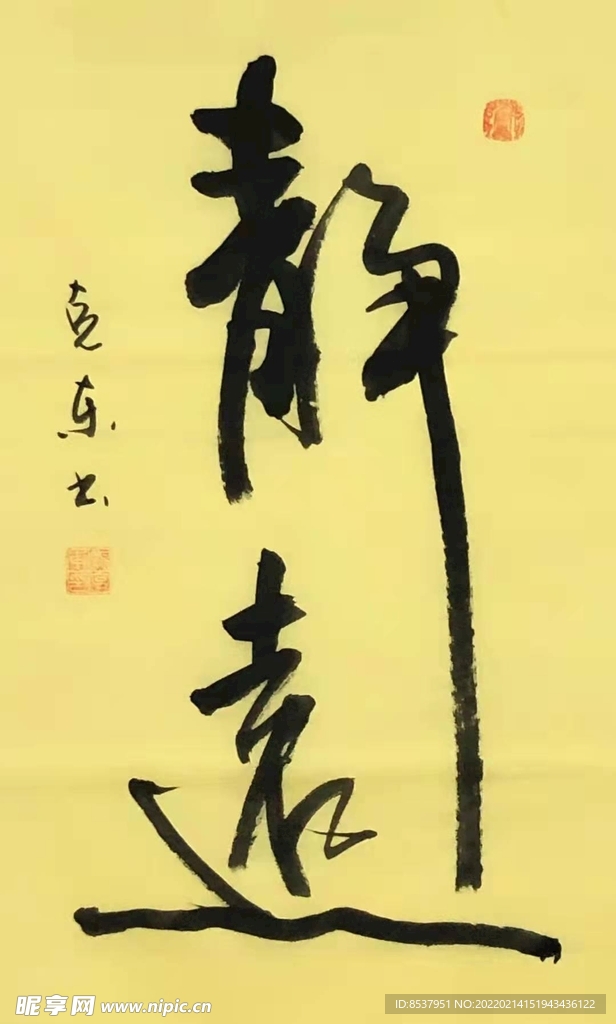 靜遠
克东书
昵享网 www.nipic.cn
ID:8537951 NO:20220214151943436122